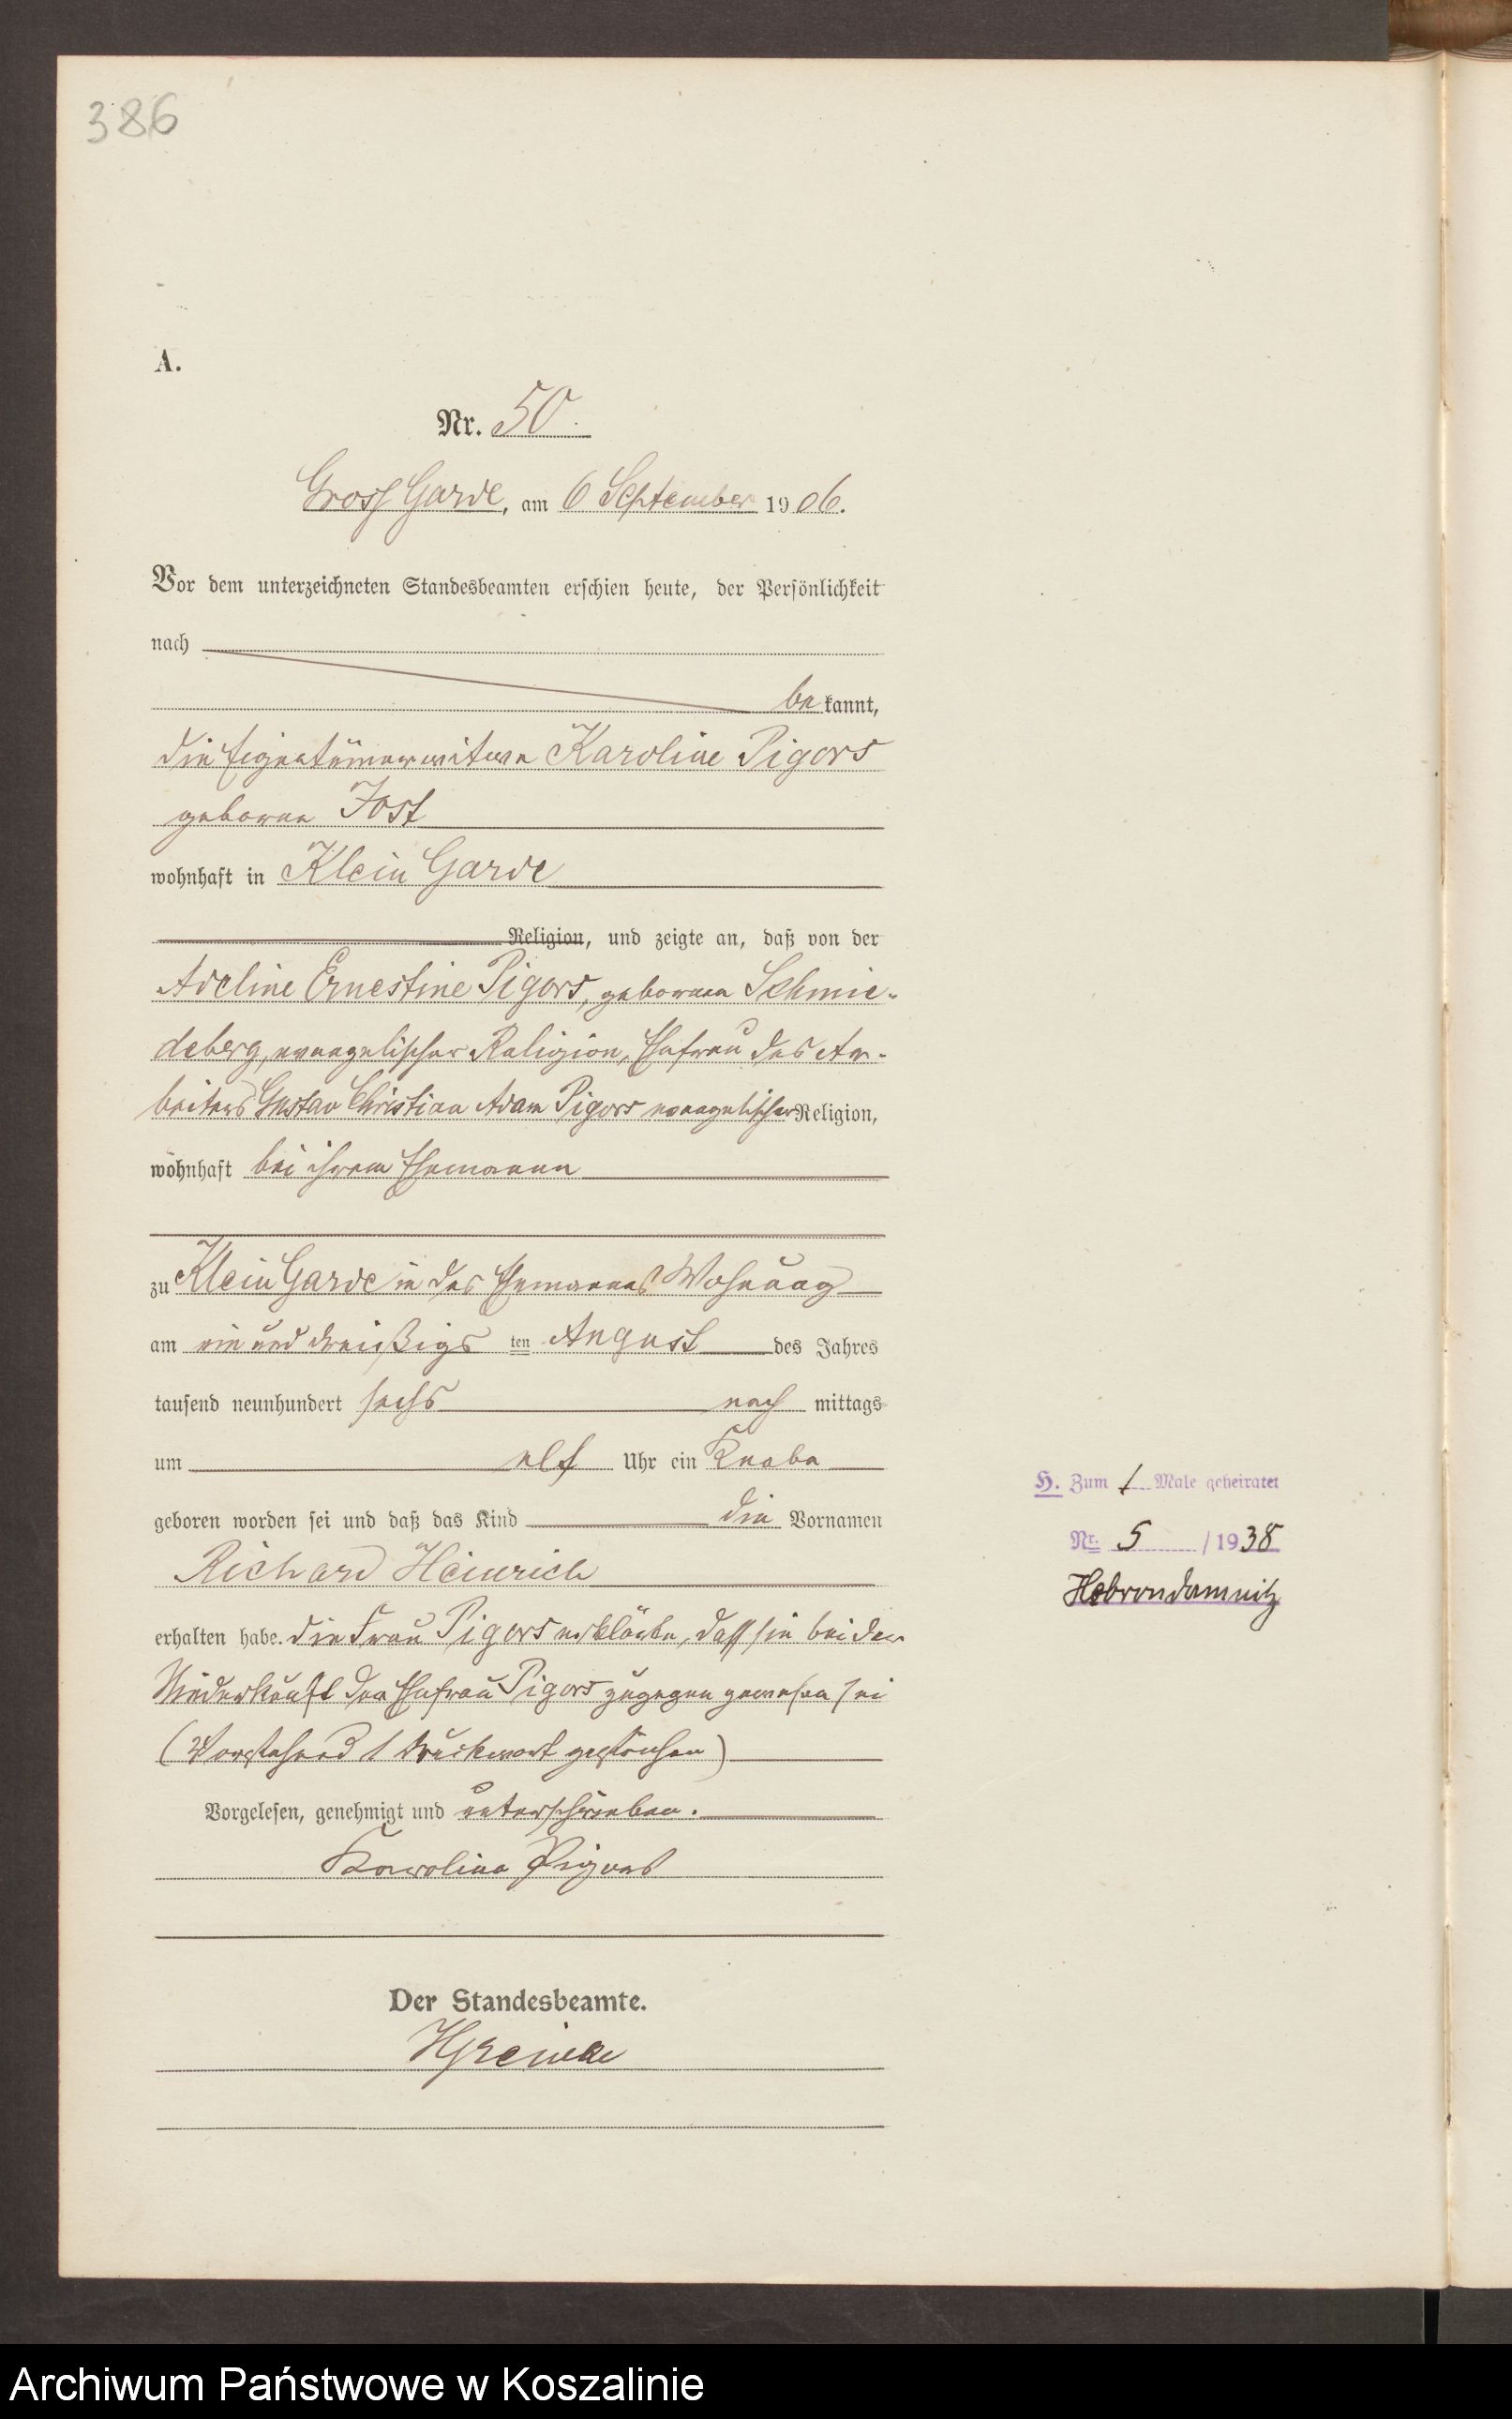 386
A.
Nr. 50.
Gross Garde, am 6 September 1906.
Vor dem unterzeichneten Standesbeamten erschien heute, der Persönlichkeit
nach
bekannt,
die Eigentümerwitwe Karoline Pigors
geborne Jost
wohnhaft in Klein Garde
Religion, und zeigte an, daß von der
Adeline Ernestine Pigors, geborenen Schmie-
deberg, evangelischer Religion, Ehefrau des Ar-
beiters Gustav Christian Adam Pigors evangelischer Religion,
wohnhaft bei ihrem Ehemanne
zu Klein Garde in des Ehemannes Wohnung
am ein und dreißigsten August des Jahres
tausend neunhundert sechs nach mittags
um elf Uhr ein Knabe
geboren worden sei und daß das Kind die Vornamen
Richard Heinrich
erhalten habe. Die Frau Pigors erklärte, daß sie bei der
Niederkunft der Ehefrau Pigors zugegen gewesen sei
(Vorstehend 1 Druckwort gestrichen)
Vorgelesen, genehmigt und unterschrieben.
Karoline Pigors
Der Standesbeamte.
H. Zum 1 Male geheiratet
Nr. 5 / 1938
Hebrondamnitz
Archiwum Państwowe w Koszalinie